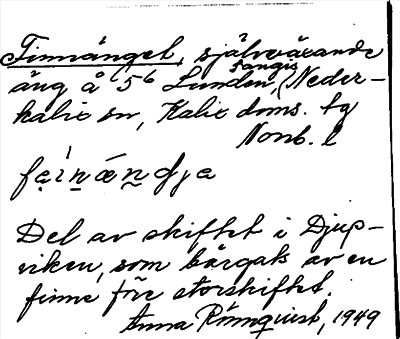 Finnängel, självväxande
äng å 5⁶ Lunden, Sangis (Neder-
kalix sn, Kalix doms. tg
Nonb. l
Del av skiftet i Djup-
viken, som bärgats av en
finne före storskiftet.
Anna Rönnqvist, 1949